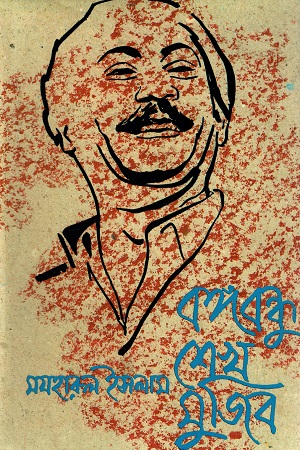 বঙ্গবন্ধু
শেখ
মুজিব
মযহারুল ইসলাম